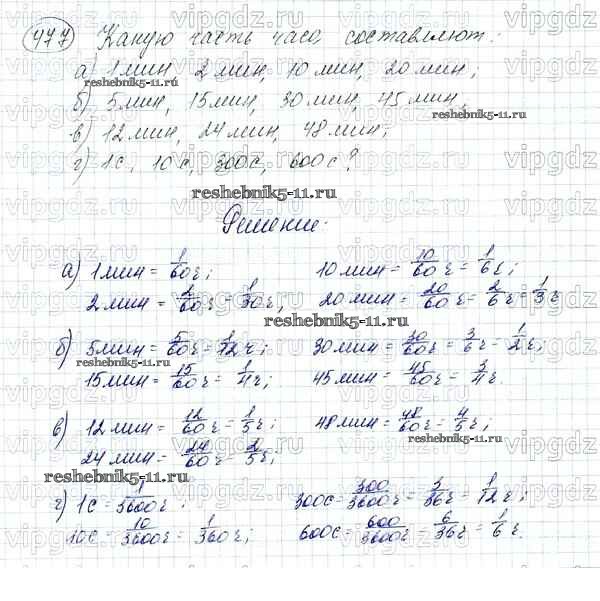 477) Какую часть часа составляют:
а) 1 мин, 2 мин, 10 мин, 20 мин;
б) 5 мин, 15 мин, 30 мин, 45 мин,
reshebnik5-11.ru
в) 12 мин, 24 мин, 48 мин;
г) 1с, 10с, 300с, 600с?
reshebnik5-11.ru
Решение:
а) 1 мин = 1/60 ч; 10 мин = 10/60 ч = 1/6 ч;
2 мин = 2/60 ч = 1/30 ч; 20 мин = 20/60 ч = 2/6 ч = 1/3 ч
reshebnik5-11.ru
б) 5 мин = 5/60 ч = 1/12 ч; 30 мин = 30/60 ч = 3/6 ч = 1/2 ч;
15 мин = 15/60 ч = 1/4 ч; 45 мин = 45/60 ч = 3/4 ч.
в) 12 мин = 12/60 ч = 1/5 ч; 48 мин = 48/60 ч = 4/5 ч;
24 мин = 24/60 ч = 2/5 ч;
reshebnik5-11.ru
г) 1с = 1/3600 ч; 300с = 300/3600 ч = 3/36 ч = 1/12 ч
10с = 10/3600 ч = 1/360 ч; 600с = 600/3600 ч = 6/36 ч = 1/6 ч.
reshebnik5-11.ru
vipgdz.ru